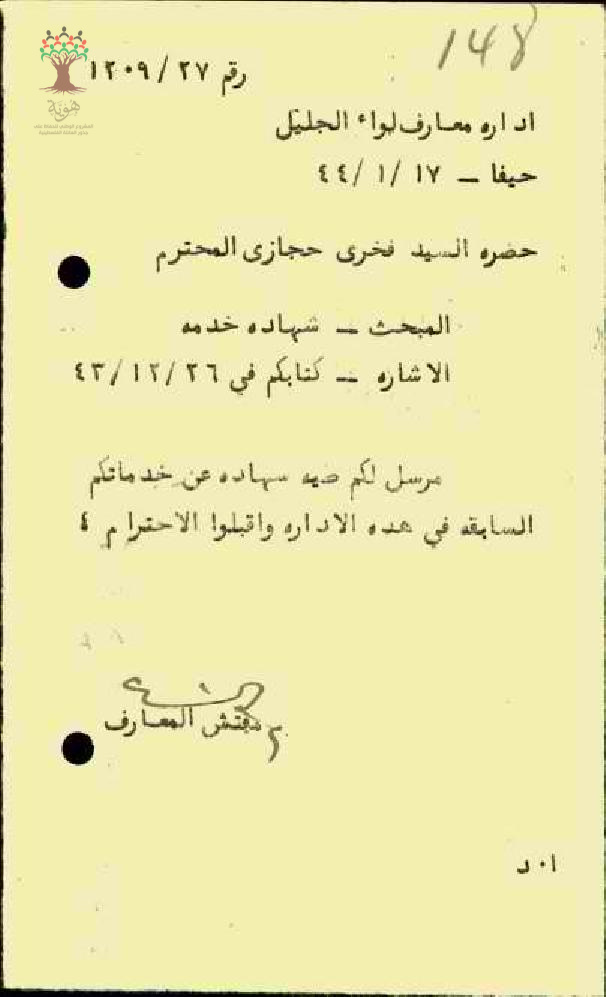 148
رقم ٢٧ / ١٢٠٩
هوية
اداره معارف لواء الجليل
حيفا ــ ١٧ /١ /٤٤
حضره السيد فخرى حجازى المحترم
المبحث ــ شهاده خدمه
الاشاره ــ كتابكم في ٢٦ /١٢ /٤٣
مرسل لكم طيه شهاده عن خدماتكم
السابقه في هذه الاداره واقبلوا الاحترام ٤
مفتش المعارف
ا٠ د